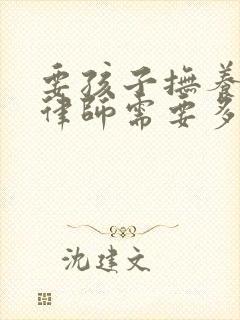 要孩子撫養
律師需要多
沈建文